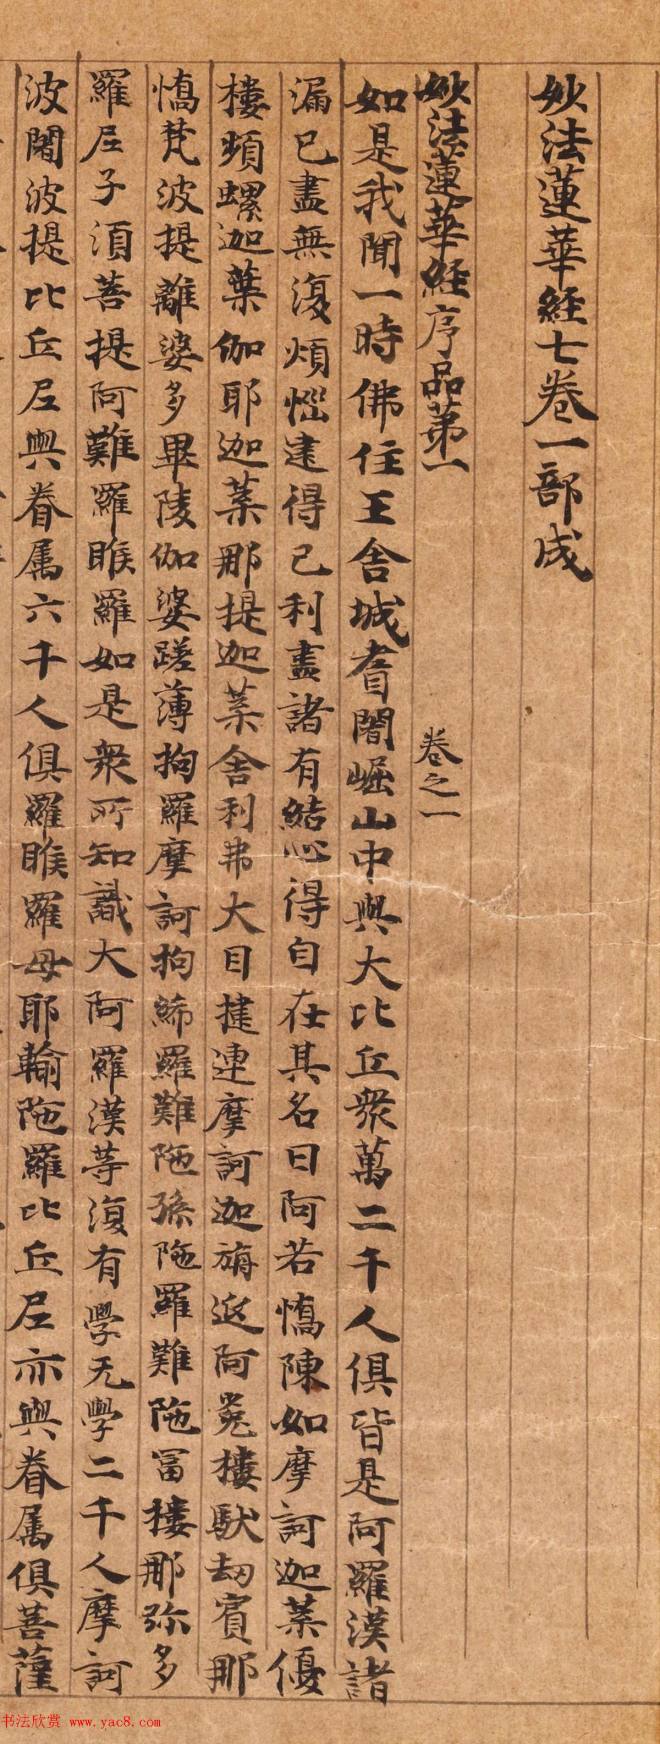 妙法蓮華経七卷一部成
妙法蓮華経序品第一 卷之一
如是我聞一時佛住王舍城耆闍崛山中與大比丘衆萬二千人俱皆是阿羅漢諸
漏已盡無復煩惱逮得己利盡諸有結心得自在其名曰阿若憍陳如摩訶迦葉優
樓頻螺迦葉伽耶迦葉那提迦葉舍利弗大目揵連摩訶迦旃延阿㝹樓馱劫賓那
憍梵波提離婆多畢陵伽婆蹉薄拘羅摩訶拘絺羅難陁孫陁羅難陁冨樓那弥多
羅尼子湏菩提阿難羅睺羅如是衆所知識大阿羅漢等復有學无學二千人摩訶
波闍波提比丘尼與眷属六千人俱羅睺羅母耶輸陁羅比丘尼亦與眷属俱菩薩
书法欣赏 www.yac8.com